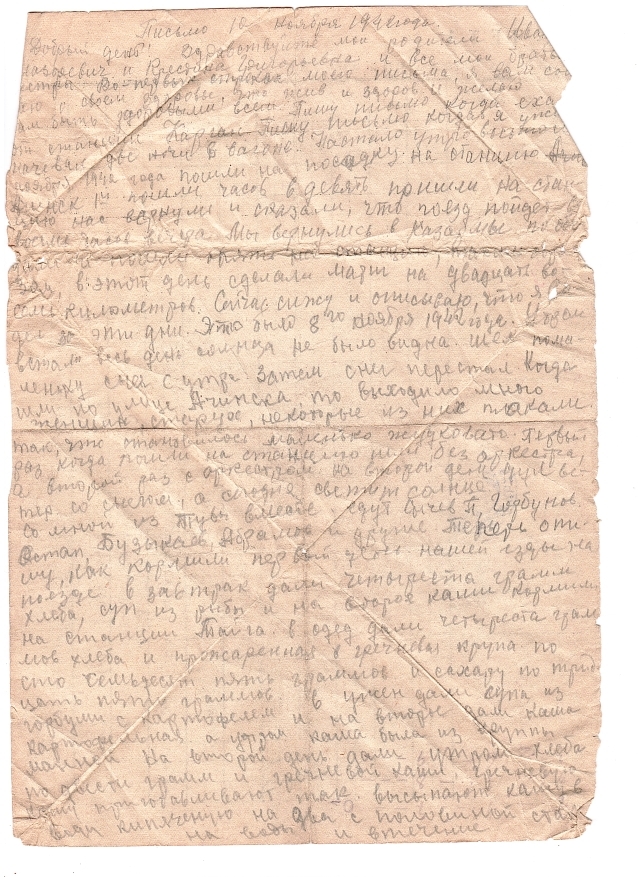 Письмо 10 ноября 1942 года.
Добрый день! Здравствуйте мои родители Иван
Назорович и Крестина Григорьевна и все мои братья
сестра. Во первых строках моего письма, я вам соо
аю о своем здоровье. Я жив и здоров и желаю
ам быть здоровыми всем. Пишу письмо когда еха
от станции Карган. Пишу письмо когда я уже
начевал две ночи в вагоне. Настало утро восьмого
ноября 1942 года пошли на посадку на станцию Ачи
Ачинск 1й пошли часов в девять пришли на стан
цию нас вернули и сказали, что поезд пойдет в
восемь часов вечера. Мы вернулись в казармы
пошли на станцию, таким обр
зом, в этот день сделали марш на двадцать во
семь километров. Сейчас сижу и описываю, что я
дел за эти дни. Это было 8го ноября 1942 года. Когда
встали весь день солнца не было видна. Шел пома
леньку снег с утра. Затем снег перестал. Когда
шли по улице Ачинска, то выходило много
женщин старух, некоторые из них плакали.
так, что становилось маленько жутковато. Первый
раз, когда пошли на станцию шли без оркестра,
а второй раз с оркестром. на второй день дул ве
тер со снегом, а сегодня светит солнце.
со мной из Тувы вместе едут П. Горбунов
Остап, Бузыкаев, Абрамов и другие. Теперь опи
шу, как кормили первый день нашей езды на
поезде. в завтрак дали четыреста грамм
хлеба, суп из рыбы и на второе каши. Кормили
на станции Тайга. в обед дали четыреста грам
мов хлеба и прожаренная гречневая крупа по
сто семьдесят пять граммов и сахару по трид
цать пять граммов. в ужен дали супа из
горбуши с картофелем и на второе дали каша
картофельная а утром каша была из круппы
манной. На второй день дали утром хлеба
по двести грамм и гречневой каши, гречневую
кашу приготавливают так: высыпают кашу в
воду кипяченую на два с половиной стак
на воды и втечение